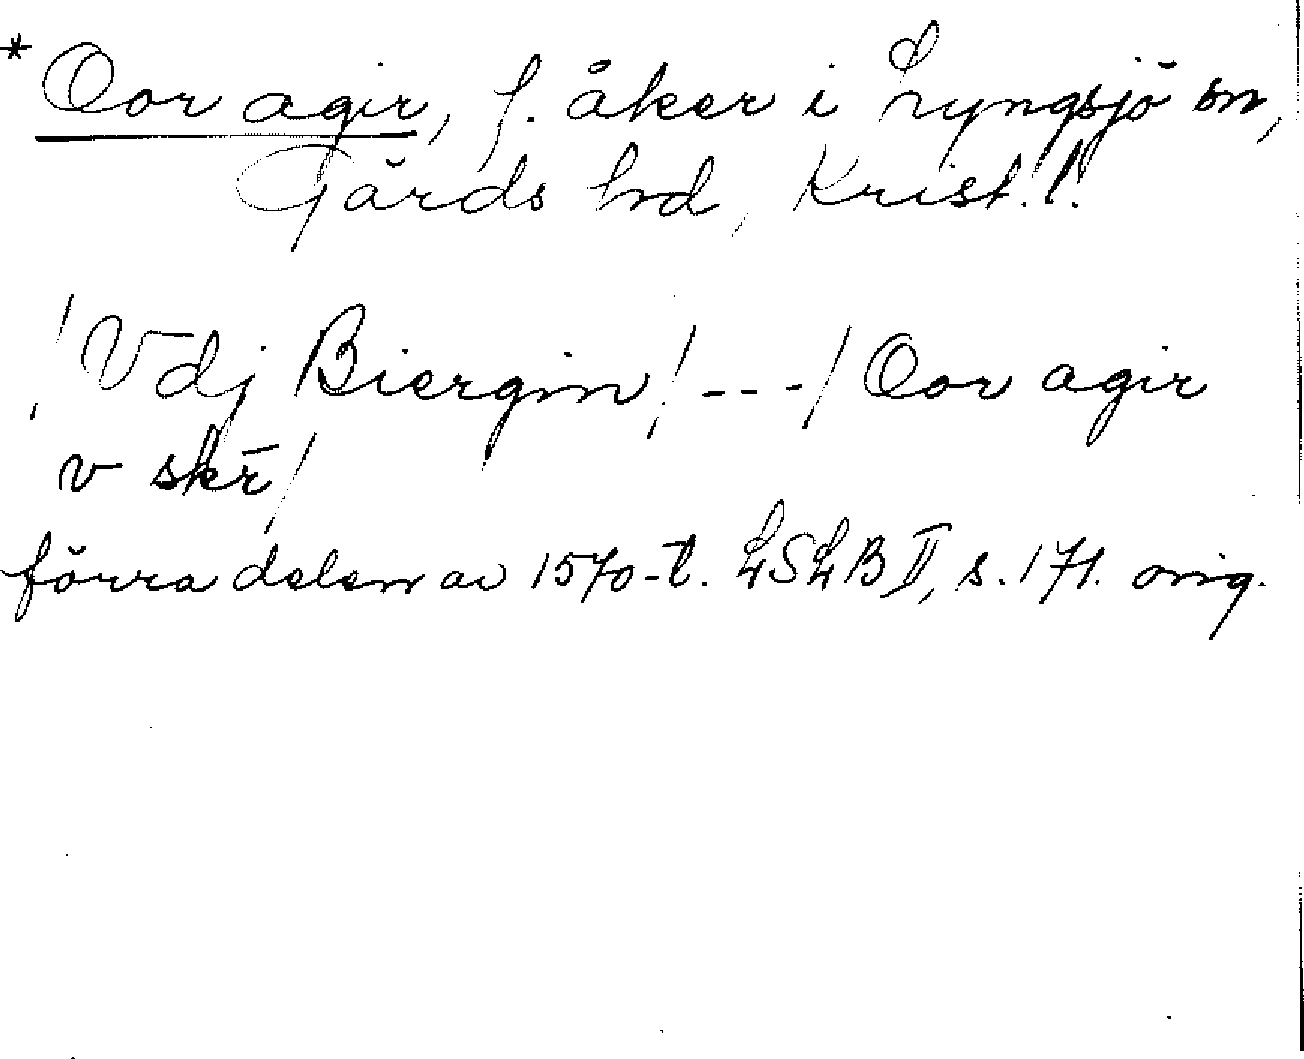 * Oor agir, f. åker i Lyngsjö sn,
Gärds hd, Krist. l.
/Vdj Biergin/---/Oor agir
v skr̄/
förra delen av 1570-t. LSLB II, s. 171. orig.